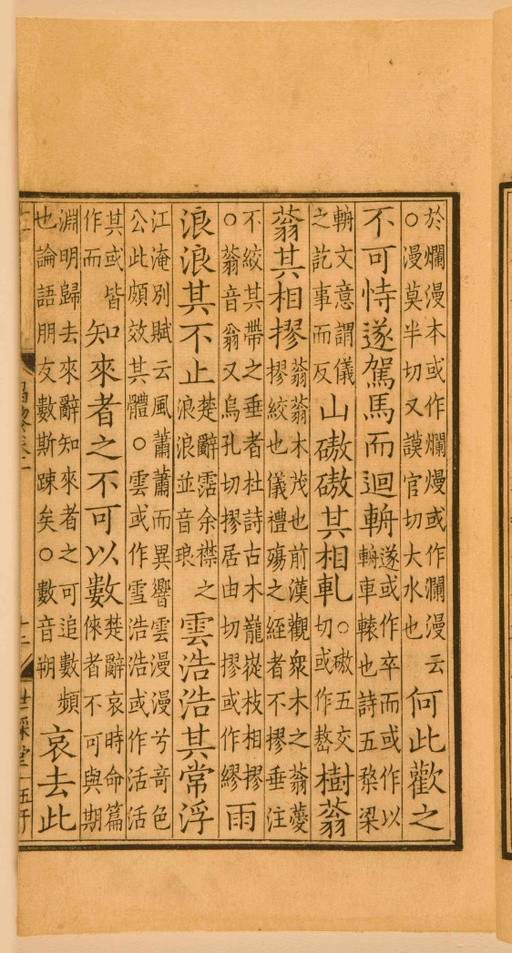 於爛漫本或作爛熳或作瀾漫云
○漫莫半切又謨官切大水也
何此歡之
不可恃遂駕馬而迴輈
遂或作卒而或作以
輈車轅也詩五楘梁
輈文意謂儀
之訖事而反
山磝磝其相軋
○磝五交
切或作嶅
樹蓊
蓊其相摎
蓊蓊木茂也前漢觀衆木之蓊薆
摎絞也儀禮殤之絰者不摎垂注
不絞其帶之垂者杜詩古木巃嵸枝相摎
○蓊音翁又烏孔切摎居由切摎或作繆
雨
浪浪其不止
楚辭霑余襟之
浪浪並音琅
雲浩浩其常浮
江淹別賦云風蕭蕭而異響雲漫漫兮奇色
公此頗效其體○雲或作雪浩浩或作活活
其或皆
作而
知來者之不可以數
楚辭哀時命篇
俫者不可與期
淵明歸去來辭知來者之可追數頻
也論語朋友數斯踈矣○數音朔
哀去此